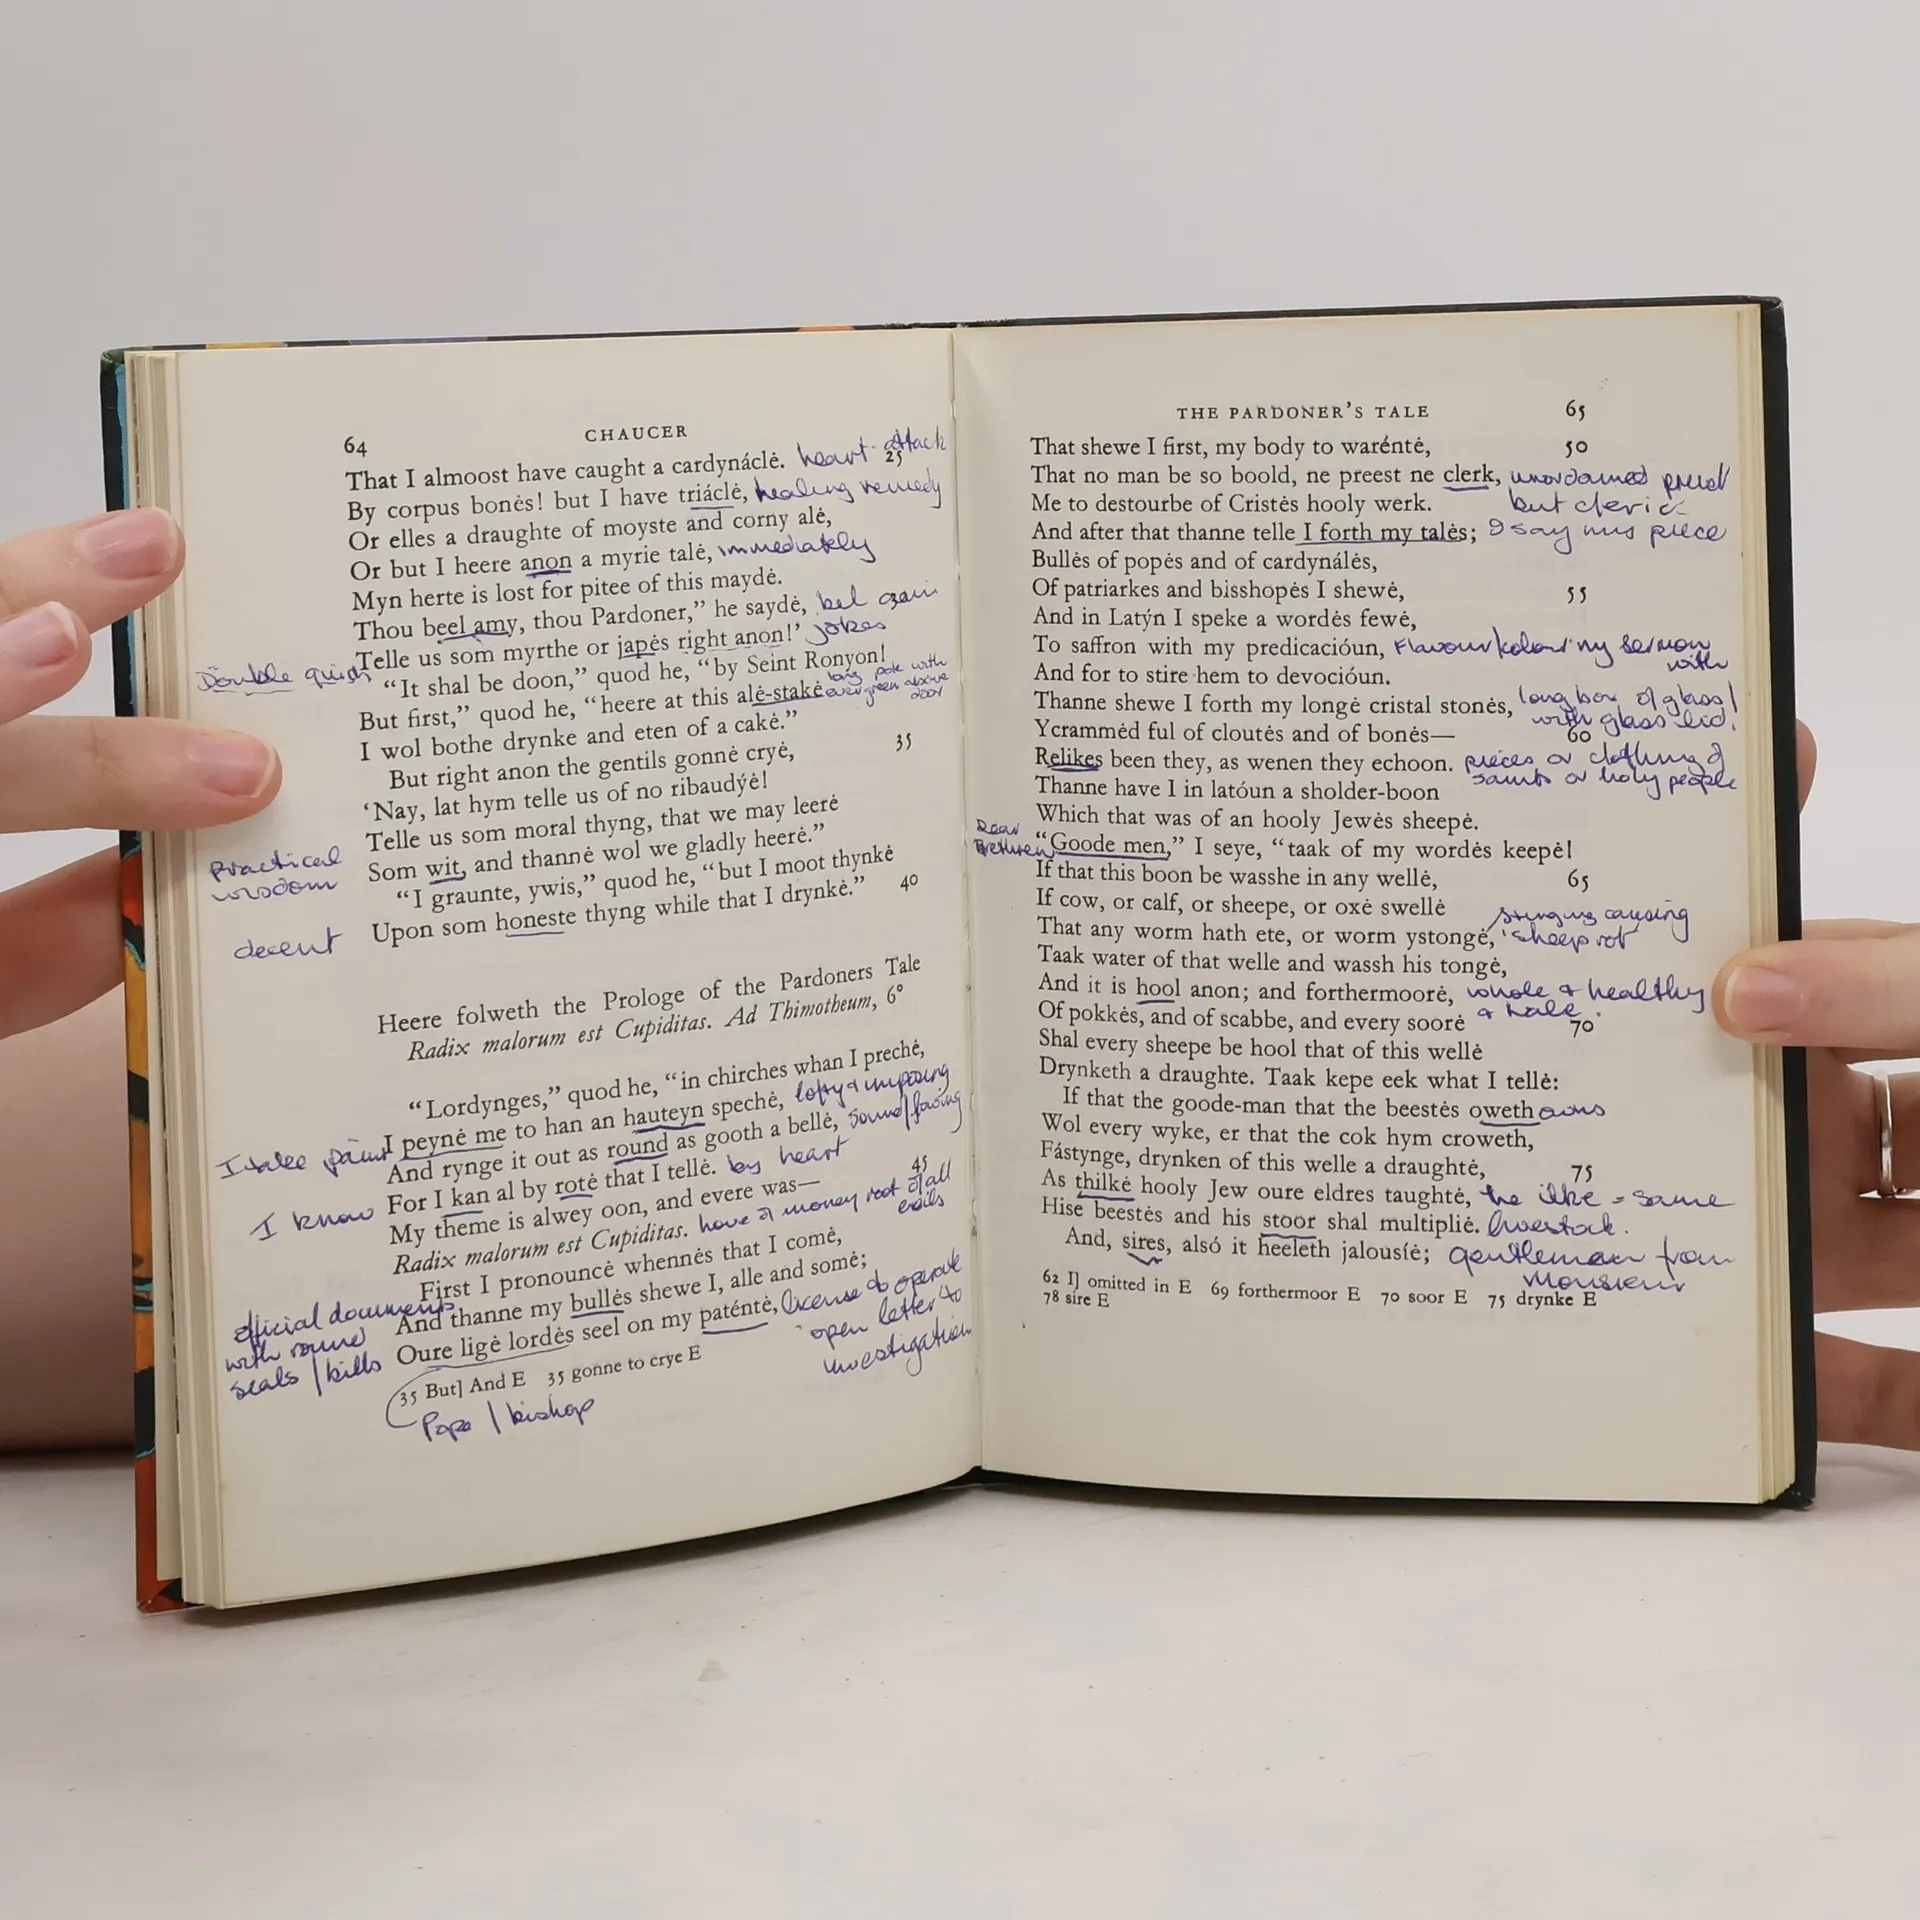 64 CHAUCER
That I almoost have caught a cardynáclė. heart attack 25
By corpus bonės! but I have triáclė, healing remedy
Or elles a draughte of moyste and corny alė,
Or but I heere anon a myrie talė, immediately
Myn herte is lost for pitee of this maydė.
Thou beel amy, thou Pardoner,” he saydė, bel
Telle us som myrthe or japės right anon!’ jokes
Double quick
“It shal be doon,” quod he, “by Seint Ronyon!
But first,” quod he, “heere at this alė-stakė long pole with evergreen above door
I wol bothe drynke and eten of a cakė.”
But right anon the gentils gonnė cryė, 35
‘Nay, lat hym telle us of no ribaudýė!
Telle us som moral thyng, that we may leerė
Practical wisdom
Som wit, and thannė wol we gladly heerė.”
“I graunte, ywis,” quod he, “but I moot thynkė
decent
Upon som honeste thyng while that I drynkė.” 40
Heere folweth the Prologe of the Pardoners Tale
Radix malorum est Cupiditas. Ad Thimotheum, 6°
“Lordynges,” quod he, “in chirches whan I prechė,
I take pains
I peynė me to han an hauteyn spechė, lofty & imposing
And rynge it out as round as gooth a bellė, sound/
For I kan al by rotė that I tellė. by heart
I know
My theme is alwey oon, and evere was— 45
Radix malorum est Cupiditas. love of money root of all evils
First I pronouncė whennės that I comė,
And thanne my bullės shewe I, alle and somė;
official documents with round seals / bills
Oure ligė lordės seel on my paténtė, license to operate
open letter to investigation
35 But] And E 35 gonne to crye E
Pope / bishop
THE PARDONER’S TALE 65
That shewe I first, my body to waréntė, 50
That no man be so boold, ne preest ne clerk, unordained priest
Me to destourbe of Cristės hooly werk. but cleric
And after that thanne telle I forth my talės; I say my piece
Bullės of popės and of cardynálės,
Of patriarkes and bisshopės I shewė, 55
And in Latýn I speke a wordės fewė,
To saffron with my predicacióun, Flavour/kolour my sermon with
And for to stire hem to devocióun.
Thanne shewe I forth my longė cristal stonės, long box of glass/
with glass lid.
Ycrammėd ful of cloutės and of bonės— 60
Relikes been they, as wenen they echoon. pieces or clothing of
saints or holy people
Thanne have I in latóun a sholder-boon
Which that was of an hooly Jewės sheepė.
Dear Brethren
“Goode men,” I seye, “taak of my wordės keepė!
If that this boon be wasshe in any wellė, 65
If cow, or calf, or sheepe, or oxė swellė
That any worm hath ete, or worm ystongė, stinging causing
‘sheep rot’
Taak water of that welle and wassh his tongė,
And it is hool anon; and forthermoorė, whole & healthy
& hale.
Of pokkės, and of scabbe, and every soorė 70
Shal every sheepe be hool that of this wellė
Drynketh a draughte. Taak kepe eek what I tellė:
If that the goode-man that the beestės oweth owns
Wol every wyke, er that the cok hym croweth,
Fástynge, drynken of this welle a draughtė, 75
As thilkė hooly Jew oure eldres taughtė, the ilke = same
Hise beestės and his stoor shal multipliė. livestock.
And, sires, alsó it heeleth jalousíė; gentleman from
Monsieur
62 I] omitted in E 69 forthermoor E 70 soor E 75 drynke E
78 sire E